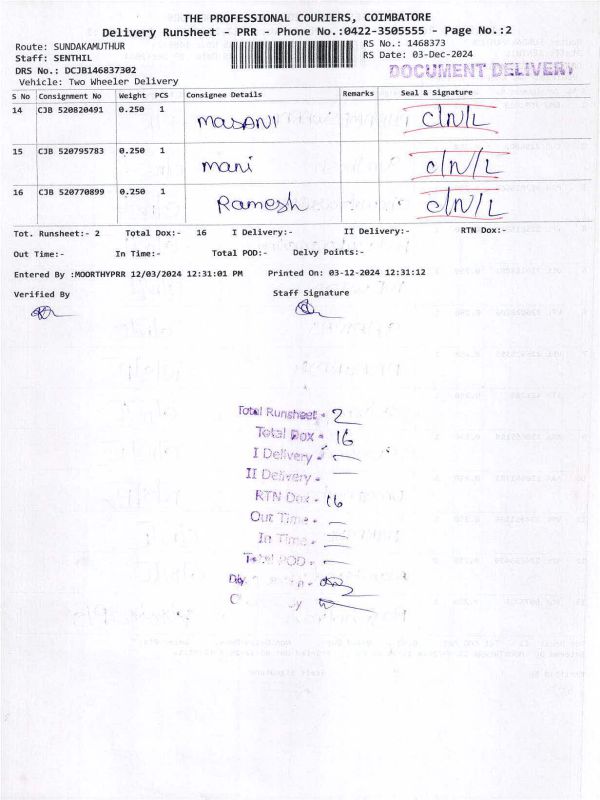 THE PROFESSIONAL COURIERS, COIMBATORE
Delivery Runsheet - PRR - Phone No.:0422-3505555 - Page No.:2
Route: SUNDAKAMUTHUR
RS No.: 1468373
Staff: SENTHIL
RS Date: 03-Dec-2024
DRS No.: DCJB146837302
DOCUMENT DELIVERY
Vehicle: Two Wheeler Delivery
S No Consignment No Weight PCS Consignee Details Remarks Seal & Signature
14 CJB 520820491 0.250 1 MASANI C/N/L
15 CJB 520795783 0.250 1 mani C/N/L
16 CJB 520770899 0.250 1 Ramesh C/N/L
Tot. Runsheet:- 2 Total Dox:- 16 I Delivery:- II Delivery:- RTN Dox:-
Out Time:- In Time:- Total POD:- Delvy Points:-
Entered By :MOORTHYPRR 12/03/2024 12:31:01 PM Printed On: 03-12-2024 12:31:12
Verified By Staff Signature
Total Runsheet - 2
Total Dox - 16
I Delivery -
II Delivery -
RTN Dox - 16
Out Time -
In Time -
Total POD -